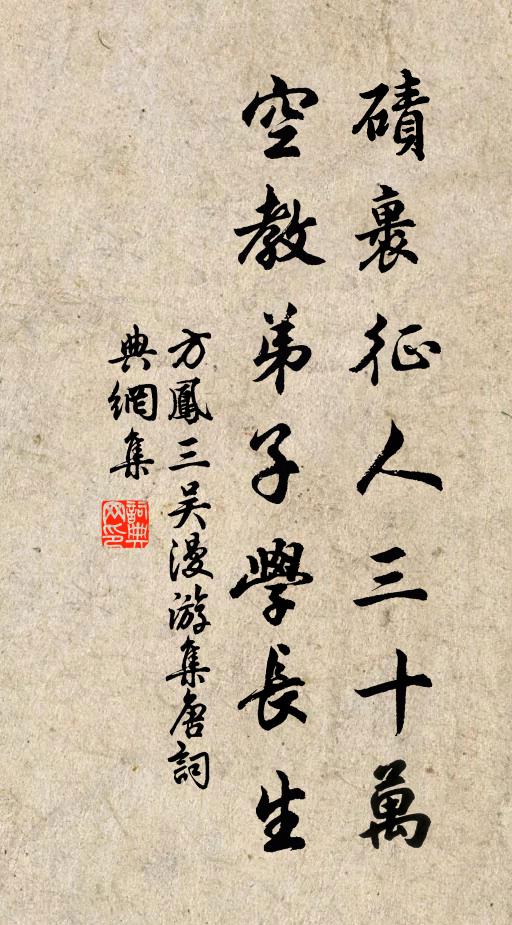 磧裏征人三十萬
空教弟子學長生
方鳳三吴漫游集唐詞
典網集
詞典網印